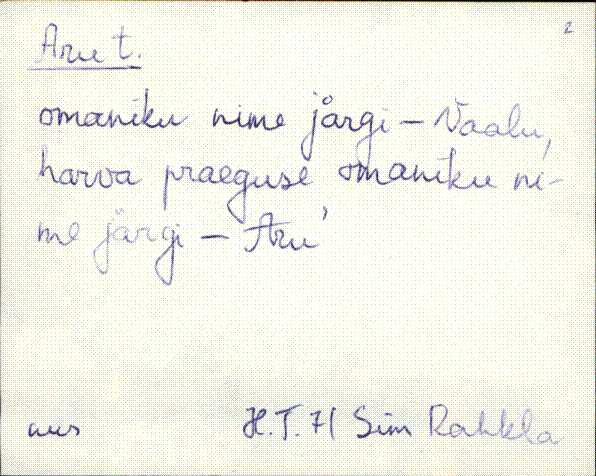 2
Aru t.
omaniku nime järgi – Vaalu,
harva praeguse omaniku ni-
me järgi – Aru'
uus H.T. 71 Sim Rahkla